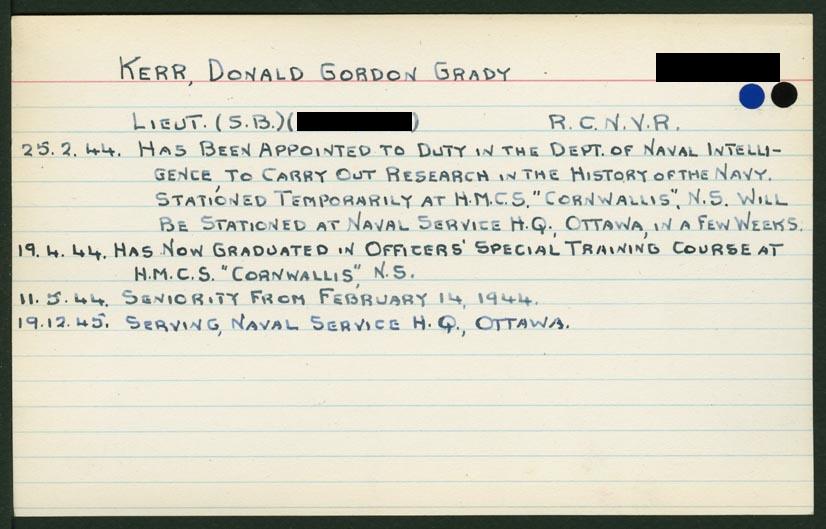 KERR, DONALD GORDON GRADY
LIEUT. (S.B.)( ) R.C.N.V.R.
25.2.44. HAS BEEN APPOINTED TO DUTY IN THE DEPT. OF NAVAL INTELLI-
GENCE, TO CARRY OUT RESEARCH IN THE HISTORY OF THE NAVY.
STATIONED TEMPORARILY AT H.M.C.S. "CORNWALLIS", N.S. WILL
BE STATIONED AT NAVAL SERVICE H.Q., OTTAWA, IN A FEW WEEKS.
19.4.44. HAS NOW GRADUATED IN OFFICERS' SPECIAL TRAINING COURSE AT
H.M.C.S. "CORNWALLIS", N.S.
11.5.44. SENIORITY FROM FEBRUARY 14, 1944.
19.12.45. SERVING, NAVAL SERVICE H.Q., OTTAWA.